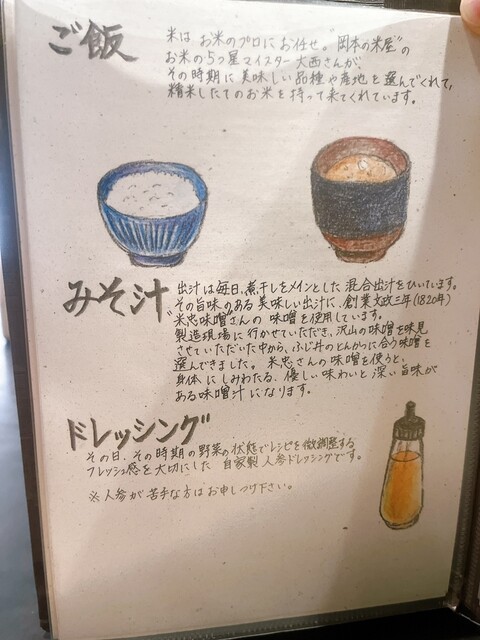 ご飯
米は お米のプロにお任せ。"岡本の米屋"の
お米の5つ星マイスター 大西さんが、
その時期に美味しい品種や産地を選んでくれて、
精米したてのお米を持って来てくれています。
みそ汁
出汁は毎日、煮干しをメインとした混合出汁をひいています。
その旨味のある美味しい出汁に、創業文政三年(1820年)
"米忠味噌"さんの 味噌を使用しています。
製造現場に行かせていただき、沢山の味噌を味見
させていただいた中から、ふじ井のとんかつに合う味噌を
選んできました。 米忠さんの味噌を使うと、
身体にしみわたる、優しい味わいと深い旨味が
ある味噌汁になります。
ドレッシング
その日、その時期の野菜の状態でレシピを微調整する
フレッシュ感を大切にした 自家製 人参ドレッシングです。
※人参が苦手な方はお申しつけ下さい。